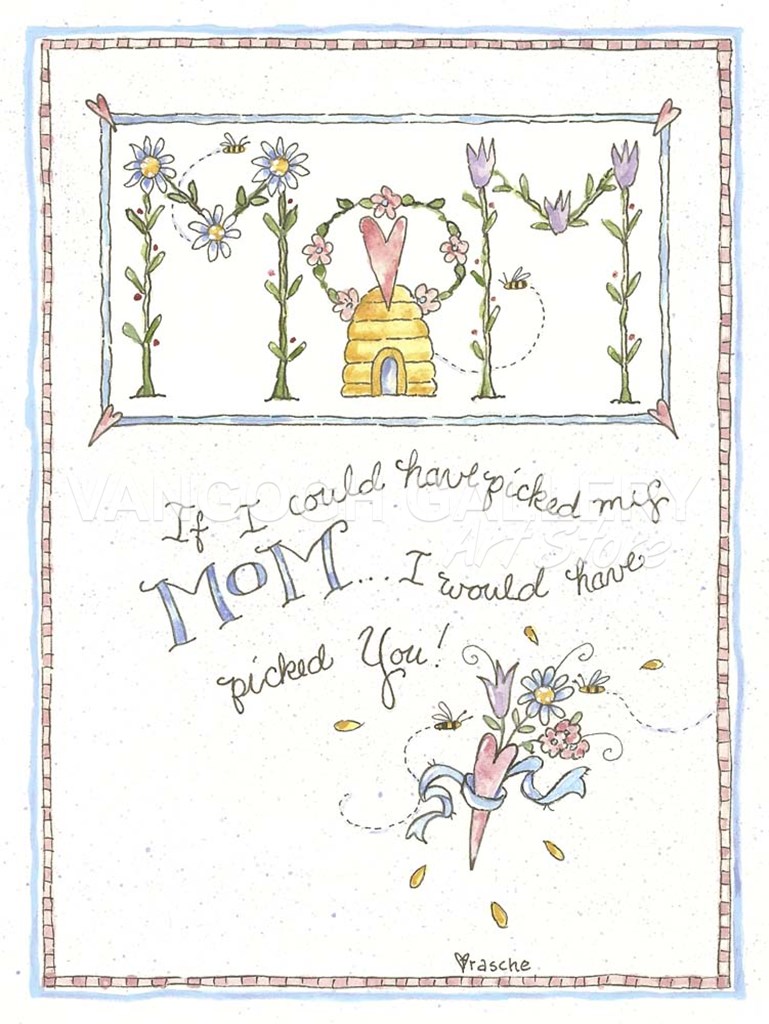 MOM
If I could have picked my
MOM... I would have
picked You!
VAN GOGH GALLERY
Art Store
rasche